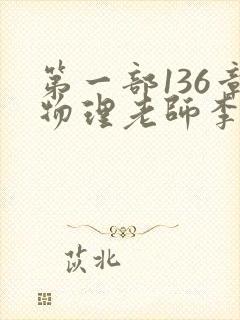 第一部136章
物理老師李
茨北